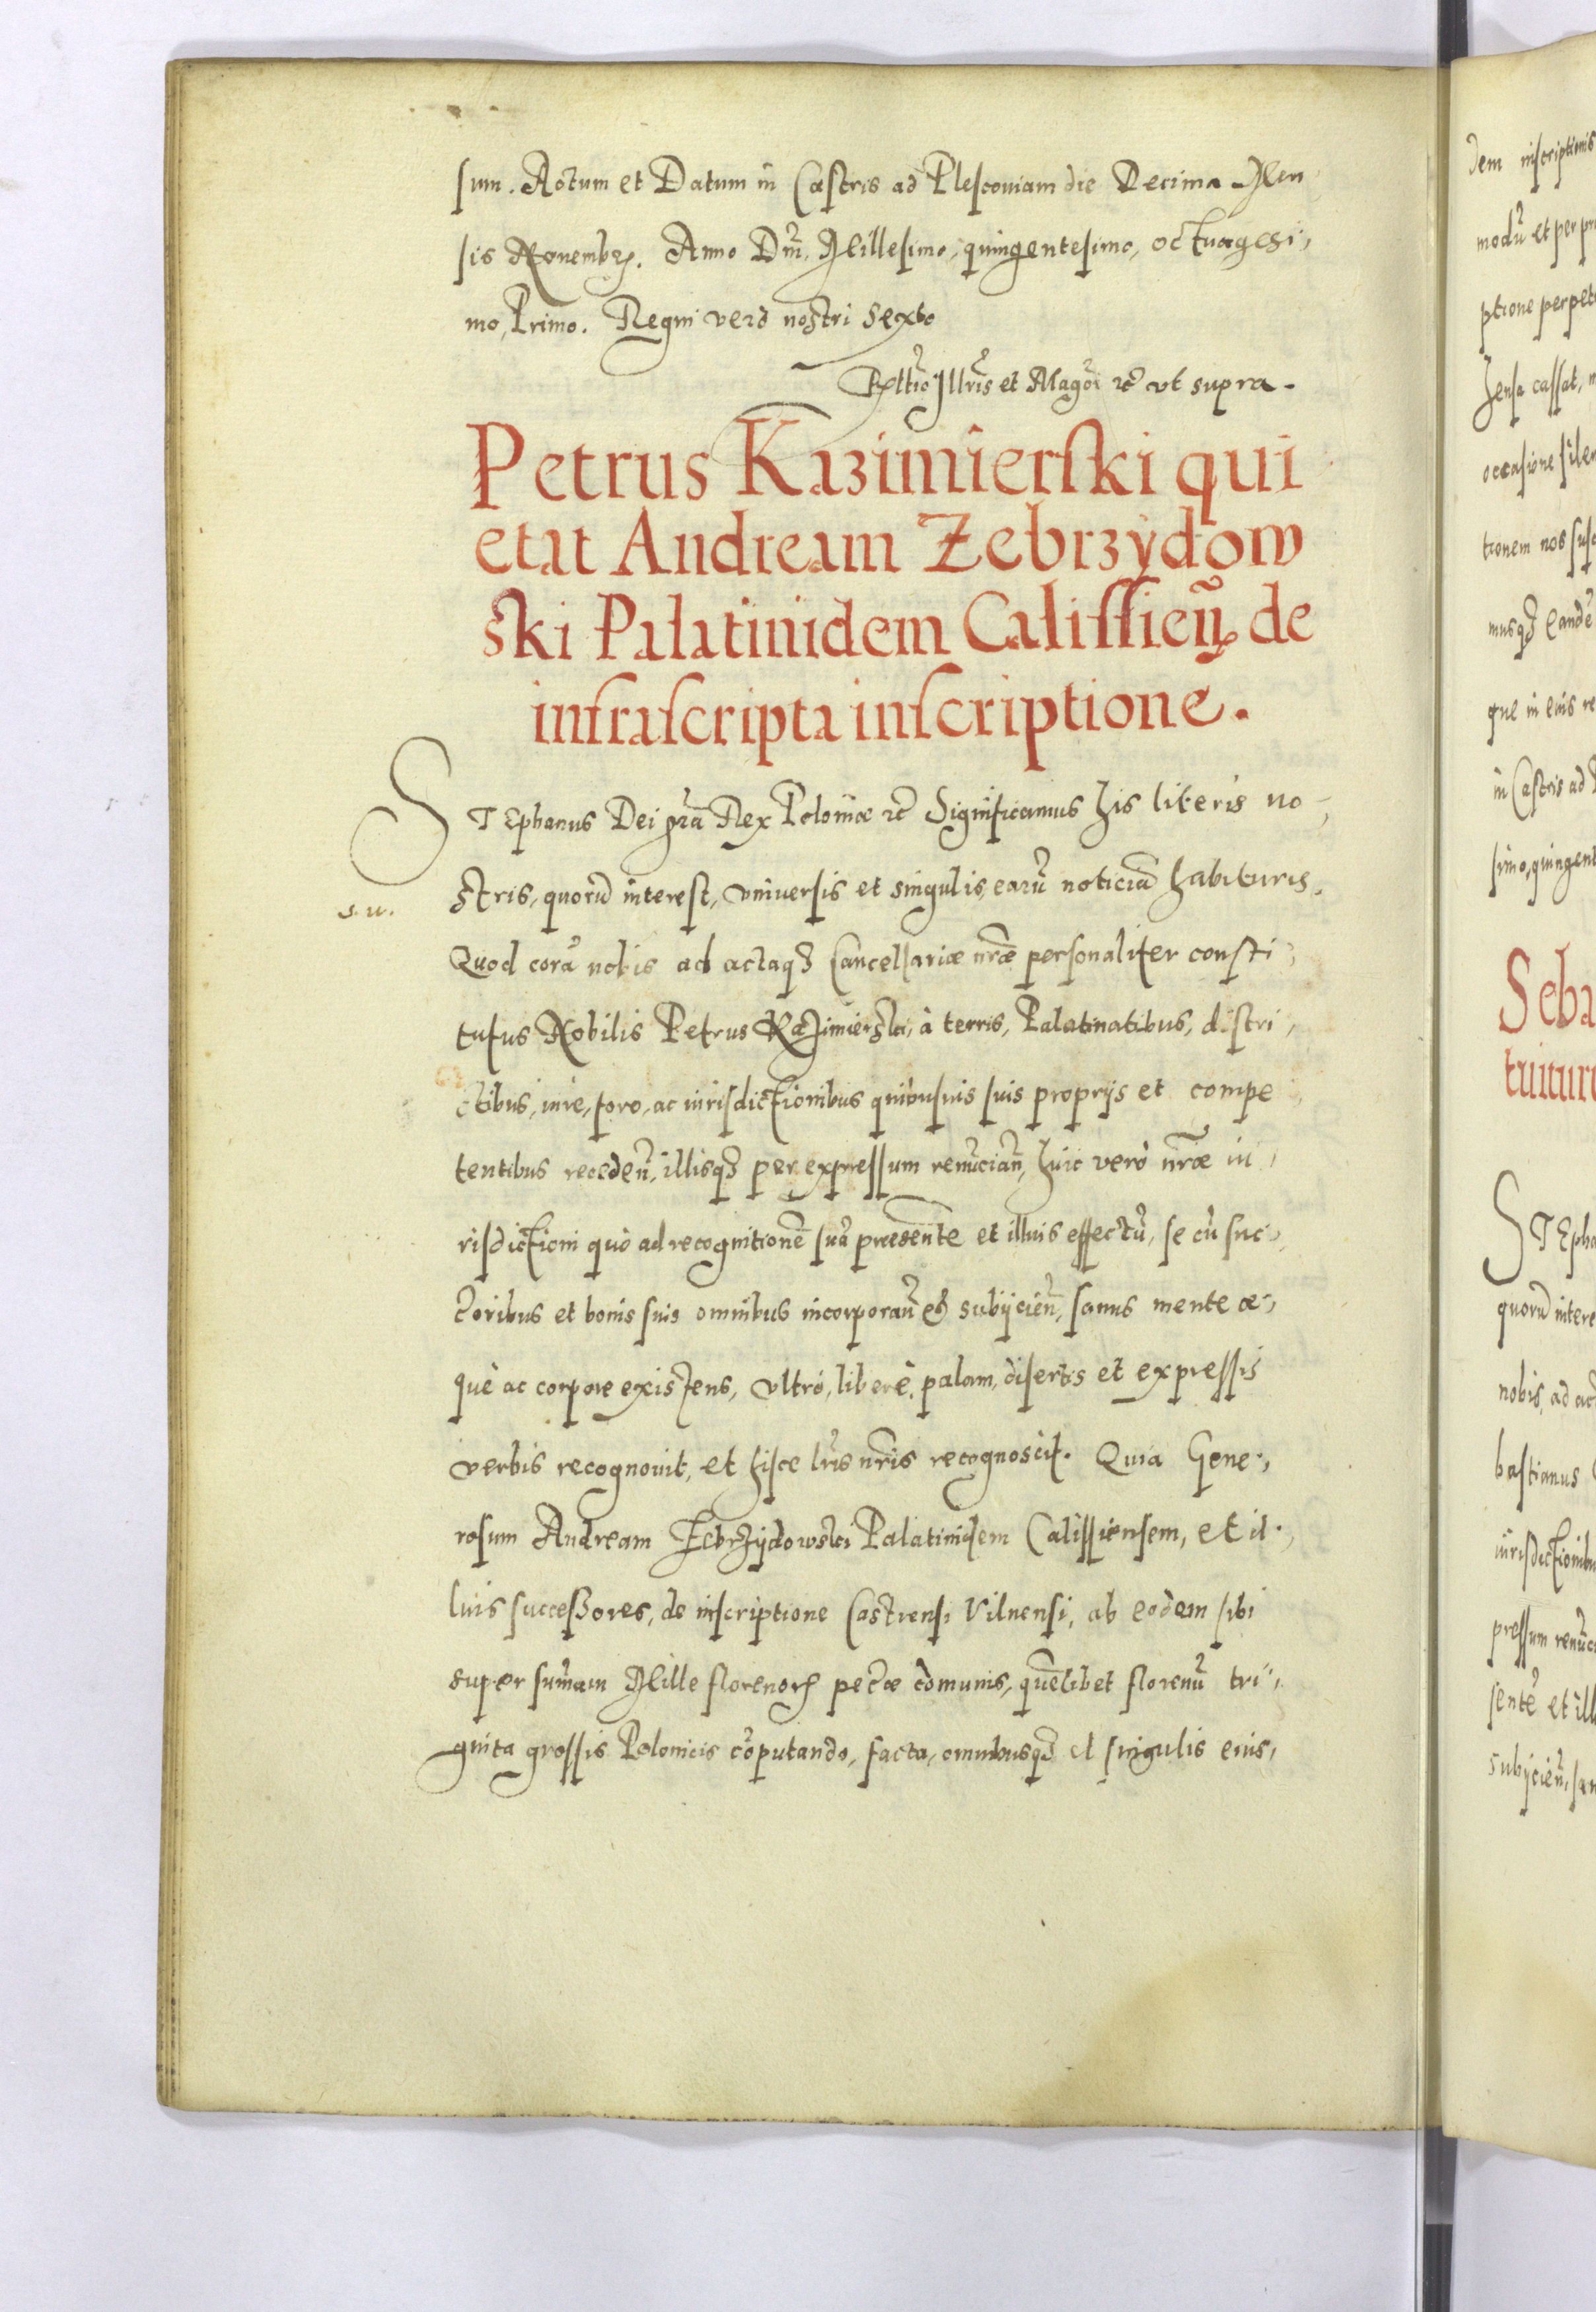 sum. Actum et Datum in Castris ad Plescouiam die Decima Men,
sis Nouembr. Anno Dñi, Millesimo, quingentesimo, octuagesi,
mo, Primo. Regni verò nostri sexto
Rltio Illris et Magci rc̃ vt supra.
Petrus Kazimierski qui
etat Andream Zebrzÿdow
ski Palatinidem Calissień de
infrascripta inscriptione.
STEphanus Dei grã Rex Poloniæ rc̃ Significamus his literis no,
s. u.
stris, quorũ interest, vniuersis et singulis, earũ noticiã habituris.
Quod corã nobis ad actaq₃ Cancellariæ nrãe personaliter consti,
tutus Nobilis Petrus Kazimierski, à terris, Palatinatibus, distri,
ctibus, iure, foro, ac iurisdictionibus quibusuis suis proprijs et compe
tentibus receden̄, illisq₃ per expressum renũcian̄, huic verò nrãe iu,
risdictioni quò ad recognitionẽ suã præsentẽ et illius effectũ, se cũ suc,
c̃oribus et bonis suis omnibus incorporan̄ et subijcien̄, sanus mente æ,
què ac corpore existens, vltrò, liberè, palam, disertis et expressis
verbis recognouit, et hisce lr̃is nr̃is recognoscit. Quia Gene,
rosum Andream Zebrzÿdowski Palatinidem Calissiensem, et il,
lius successores, de inscriptione Castrensi Vilnensi, ab eodem sibi
super sum̃am Mille florenor̃ pec̃æ com̃unis, quẽlibet florenũ tri,
ginta grossis Polonicis cõputando, facta, omnibusq₃ et singulis eius,
dem inscriptionis
modũ et per
ptione
cassat,
occasione
tionem nos
musq₃ eandẽ
que in eius re
in Castris ad
simo, quingent
Seba
tuitur
STEpha
quorũ intere
nobis, ad
bastianus
iurisdictionibu
pressum renũc
sentẽ et ill
subijcien̄, san